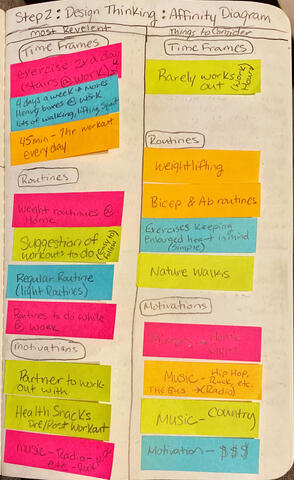 Step 2: Design Thinking: Affinity Diagram
most Revelent
Time Frames
exercise 2x a day
(stairs @ work)
4 days a week → mores
Heavy boxes @ work
lots of walking, lifting
45min - 1hr workout
every day
Routines
Weight routines @
Home
Suggestion of
workouts to do (Easy to Follow)
Regular Routine
(light Routines)
Routines to do while
@ work
Motivations
Partner to work-
out with
Health Snacks
Pre/Post Workout
Music - Radio -
etc - Rock
Things to Consider
Time Frames
Rarely works
out (work Hours)
Routines
Weightlifting
Bicep & Ab routines
Exercises Keeping
Enlarged heart in mind
(simple)
Nature Walks
Motivations
Home
Music - Hip Hop,
Rock, etc.
The Bus → (Radio)
Music - Country
Motivation - $$$